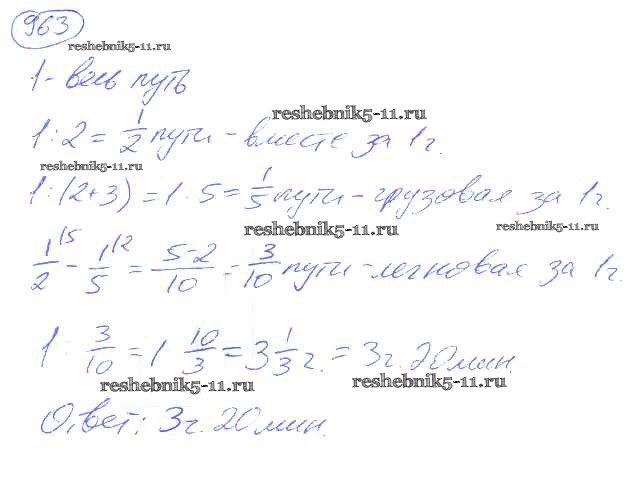 963
reshebnik5-11.ru
1 - весь путь
reshebnik5-11.ru
1 : 2 = 1/2 пути - вместе за 1 г.
reshebnik5-11.ru
1 : (2+3) = 1 · 5 = 1/5 пути - грузовая за 1 г.
reshebnik5-11.ru reshebnik5-11.ru
1/2 |5 - 1/5 |2 = 5-2/10 = 3/10 пути - легковая за 1 г.
1 : 3/10 = 1 10/3 = 3 1/3 г. = 3 г. 20 мин.
reshebnik5-11.ru reshebnik5-11.ru
Ответ: 3 г. 20 мин.